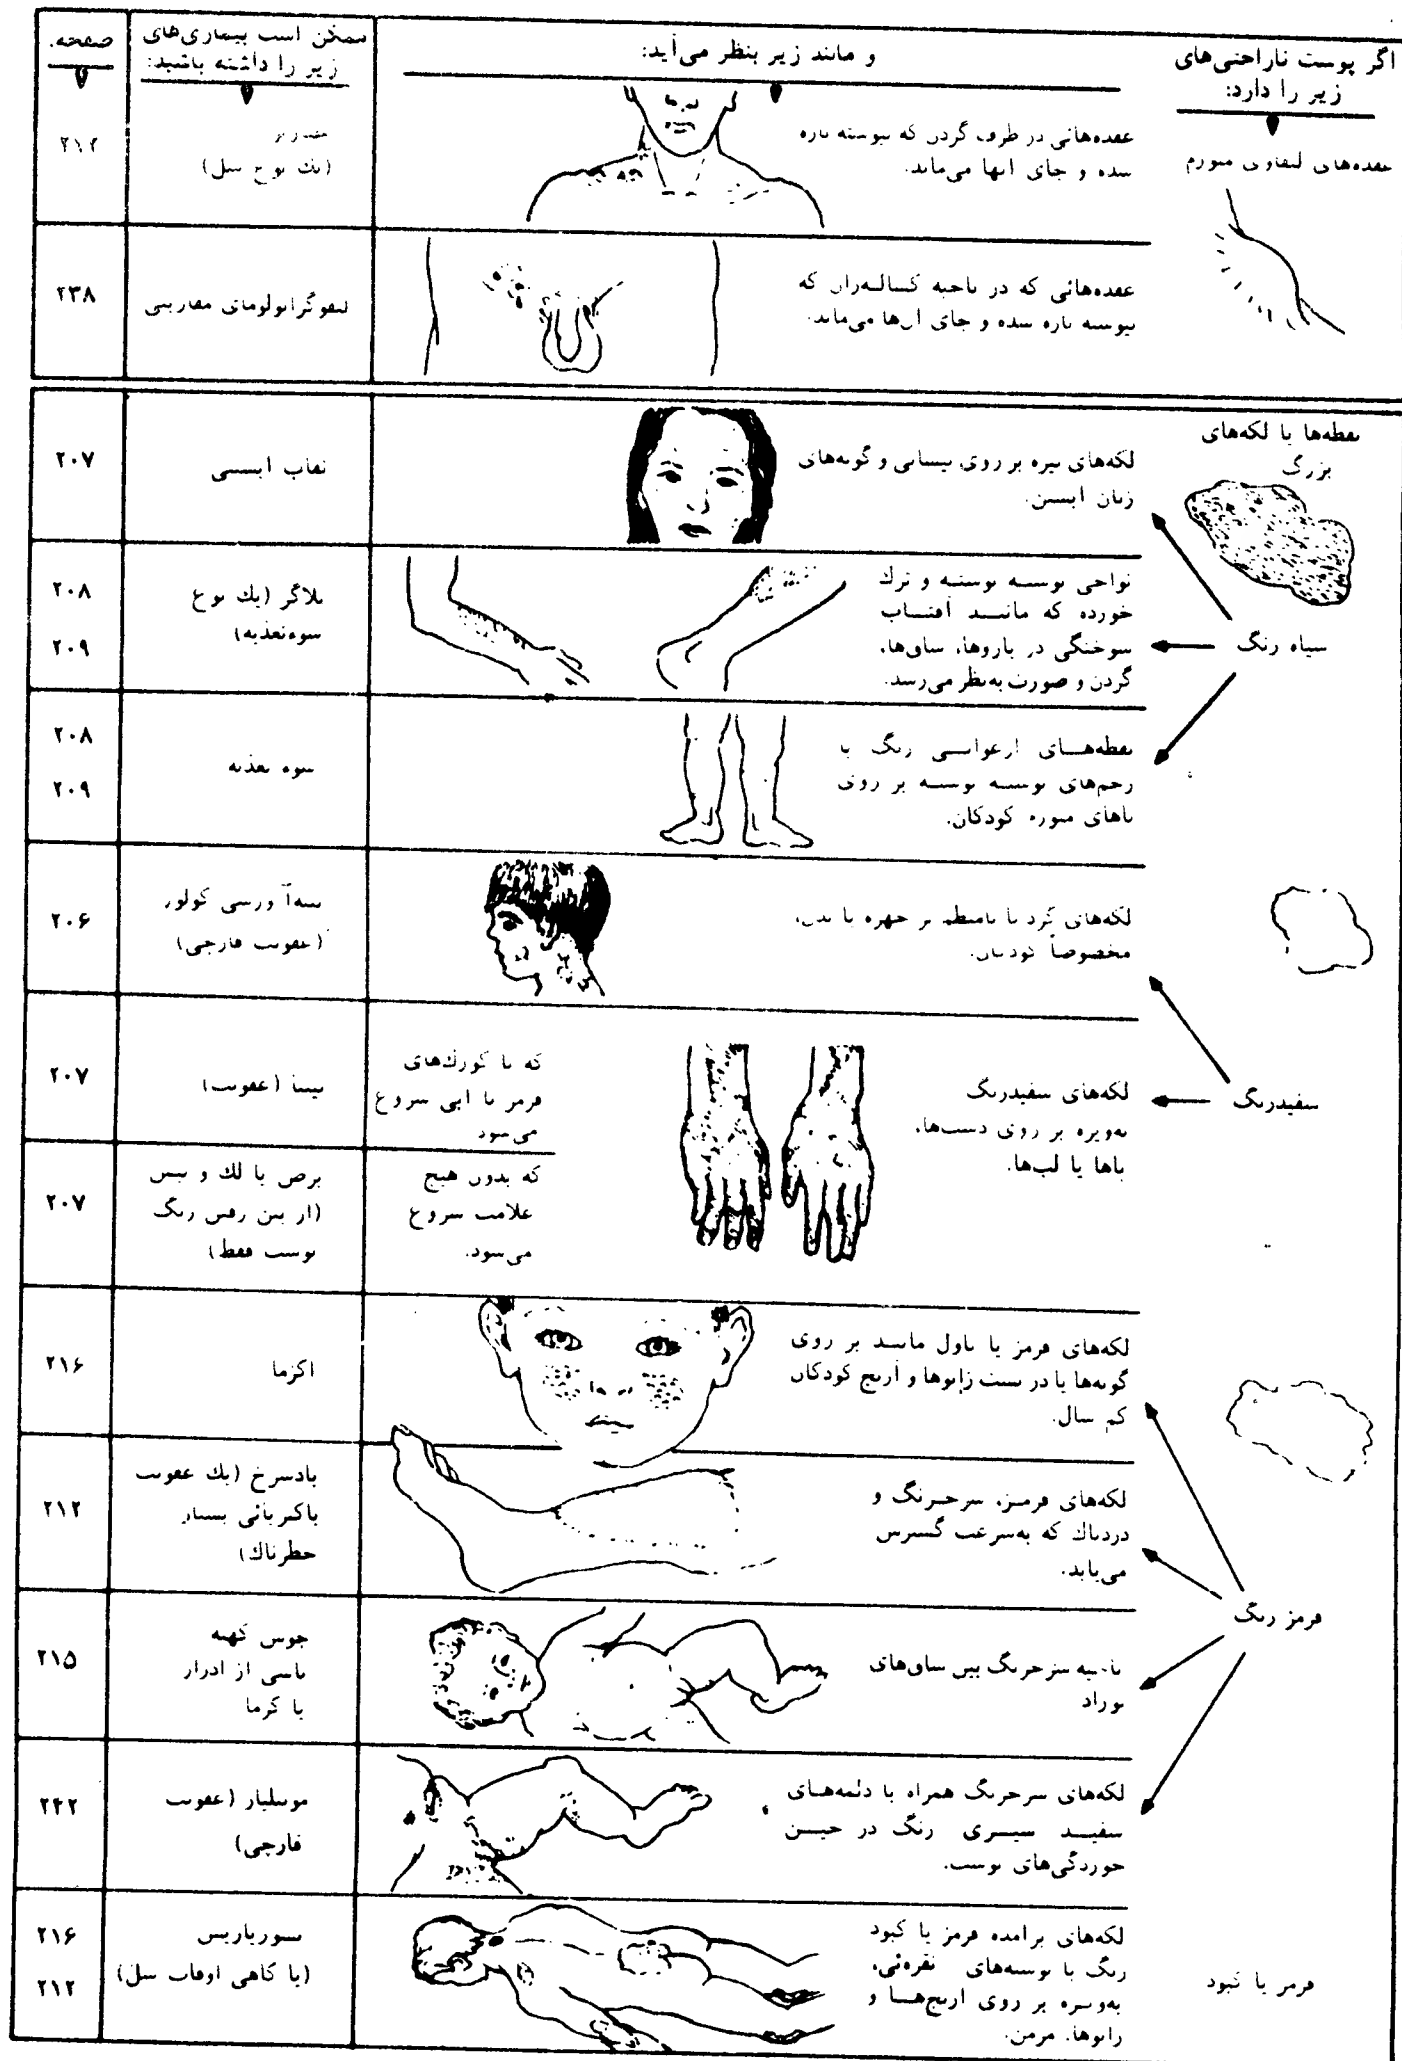 اگر پوست ناراحتی‌های
زیر را دارد:
و مانند زیر بنظر می‌آید:
ممکن است بیماری‌های
زیر را داشته باشید:
صفحه.
عقده‌های لنفاوی متورم
عقده‌هائی در طرف گردن که پیوسته پاره
شده و جای آنها می‌ماند.
(یک نوع سل)
۲۱۲
عقده‌هائی که در ناحیه کشاله‌ران که
پیوسته پاره شده و جای آن‌ها می‌ماند.
لنفوگرانولومای مقاربتی
۲۳۸
نقطه‌ها یا لکه‌های
بزرگ
سیاه رنگ
لکه‌های تیره بر روی پیشانی و گونه‌های
زنان آبستن.
نقاب آبستنی
۲۰۷
نواحی پوسته پوسته و ترک
خورده که مانند آفتاب
سوختگی در بازوها، ساق‌ها،
گردن و صورت به‌نظر می‌رسد.
پلاگر (یک نوع
سوءتغذیه)
۲۰۸
۲۰۹
نقطه‌های ارغوانی رنگ یا
زخم‌های پوسته پوسته بر روی
پاهای متورم کودکان.
سوء تغذیه
۲۰۸
۲۰۹
سفیدرنگ
لکه‌های گرد یا نامنظم بر چهره یا بدن،
مخصوصاً کودکان.
ورسی کولور
(عفونت قارچی)
۲۰۶
لکه‌های سفیدرنگ
به‌ویژه بر روی دست‌ها،
پاها یا لب‌ها.
که با کورک‌های
قرمز یا آبی شروع
می‌شود
پینتا (عفونت)
۲۰۷
که بدون هیچ
علامت شروع
می‌شود.
برص یا لک و پیس
(از بین رفتن رنگ
پوست فقط)
۲۰۷
قرمز رنگ
لکه‌های قرمز یا تاول مانند بر روی
گونه‌ها یا در پشت زانوها و آرنج کودکان
کم سال.
اکزما
۲۱۶
لکه‌های قرمز، سرخرنگ و
دردناک که به‌سرعت گسترش
می‌یابد.
بادسرخ (یک عفونت
باکتریائی بسیار
خطرناک)
۲۱۲
ناحیه سرخرنگ بین ساق‌های
نوزاد
جوش کهنه
ناشی از ادرار
یا گرما
۲۱۵
لکه‌های سرخرنگ همراه با دلمه‌های
سفید شیری رنگ در چین
خوردگی‌های پوست.
مونیلیاز (عفونت
قارچی)
۲۴۲
قرمز یا کبود
لکه‌های برآمده قرمز یا کبود
رنگ با پوسته‌های نقره‌ئی،
به‌ویژه بر روی آرنج‌ها و
زانوها، مزمن.
پسوریازیس
(یا گاهی اوقات سل)
۲۱۶
۲۱۲